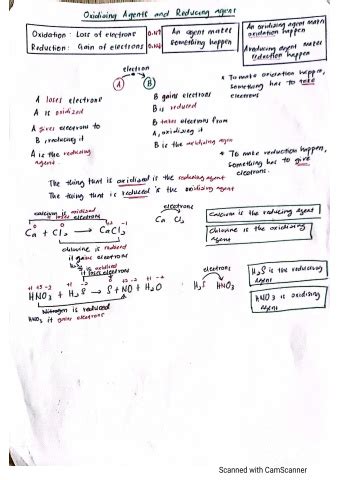 Oxidising Agents and Reducing Agent
Oxidation : Loss of electrons
Reduction : Gain of electrons
An agent makes
something happen
An oxidising agent makes
oxidation happen
A reducing agent makes
reduction happen
electron
A B
A loses electrons
A is oxidized
A gives electrons to
B, reducing it
A is the reducing
agent
B gains electrons
B is reduced
B takes electrons from
A, oxidizing it
B is the oxidizing agent
* To make oxidation happen,
something has to take
electrons
* To make reduction happen,
something has to give
electrons.
The thing that is oxidised is the reducing agent
The thing that is reduced is the oxidizing agent
calcium is oxidised
it loses electrons
0 0 +2 -1
Ca + Cl2 → CaCl2
chlorine is reduced
it gains electrons
electrons
Ca Cl2
Calcium is the reducing agent
Chlorine is the oxidising
agent
is oxidized
it loses electrons
HNO3 + H2S → S + NO + H2O
Nitrogen is reduced
HNO3 it gains electrons
electrons
H2S HNO3
H2S is the reducing
agent
HNO3 is oxidising
agent
Scanned with CamScanner